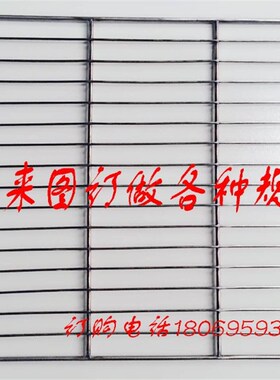 来图订做各种规
订购电话18069593